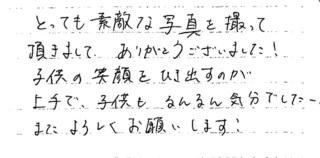 とっても素敵な写真を撮って
頂きまして、ありがとうございました!
子供の笑顔をひき出すのが
上手で、子供も、なんなん気分でした〜
また よろしくお願いします!